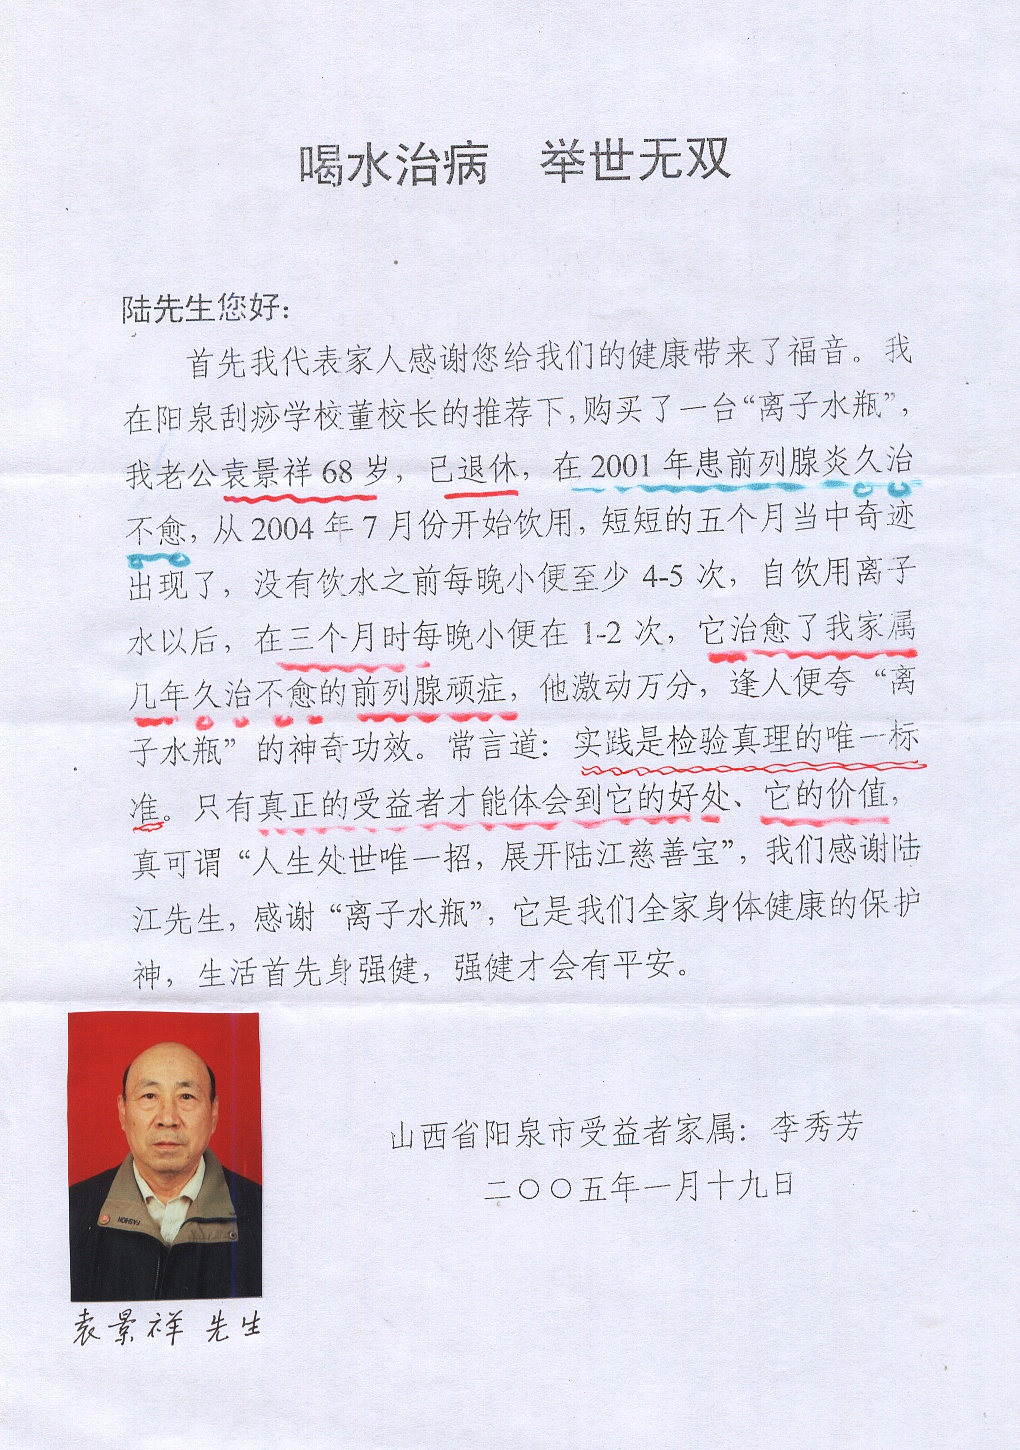 喝水治病　举世无双
陆先生您好：
首先我代表家人感谢您给我们的健康带来了福音。我
在阳泉刮痧学校董校长的推荐下,购买了一台“离子水瓶”，
我老公袁景祥 68 岁，已退休，在 2001 年患前列腺炎久治
不愈，从 2004 年 7 月份开始饮用，短短的五个月当中奇迹
出现了，没有饮水之前每晚小便至少 4-5 次，自饮用离子
水以后，在三个月时每晚小便在 1-2 次，它治愈了我家属
几年久治不愈的前列腺顽症，他激动万分，逢人便夸“离
子水瓶”的神奇功效。常言道：实践是检验真理的唯一标
准。只有真正的受益者才能体会到它的好处、它的价值，
真可谓“人生处世唯一招，展开陆江慈善宝”，我们感谢陆
江先生，感谢“离子水瓶”，它是我们全家身体健康的保护
神，生活首先身强健，强健才会有平安。
山西省阳泉市受益者家属：李秀芳
二〇〇五年一月十九日
袁景祥 先生